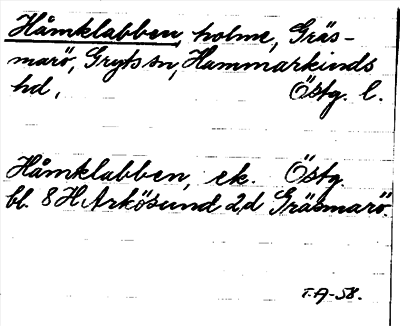 Håmklabben, holme, Gräs-
marö, Gryts sn, Hammarkinds
hd, Östg. l.
Håmklabben, ek. Östg.
bl. 8 H Arkösund 2d Gräsmarö.
T.A-58.